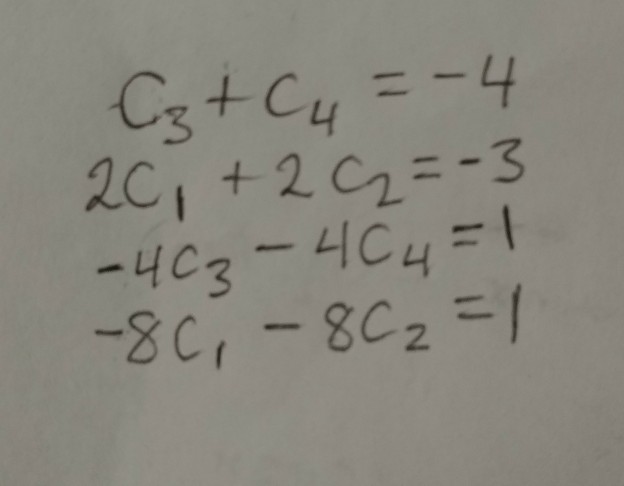 C₃ + C₄ = -4
2C₁ + 2C₂ = -3
-4C₃ - 4C₄ = 1
-8C₁ - 8C₂ = 1